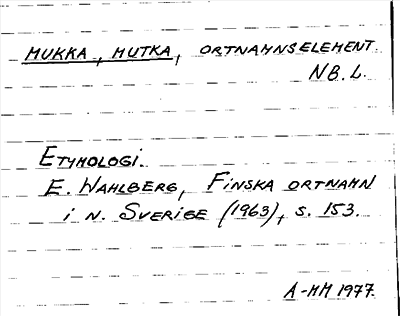 MUKKA, MUTKA, ORTNAMNSELEMENT.
NB. L.
ETYMOLOGI.
E. WAHLBERG, FINSKA ORTNAMN
i N. SVERIGE (1963), s. 153.
A-MM 1977.